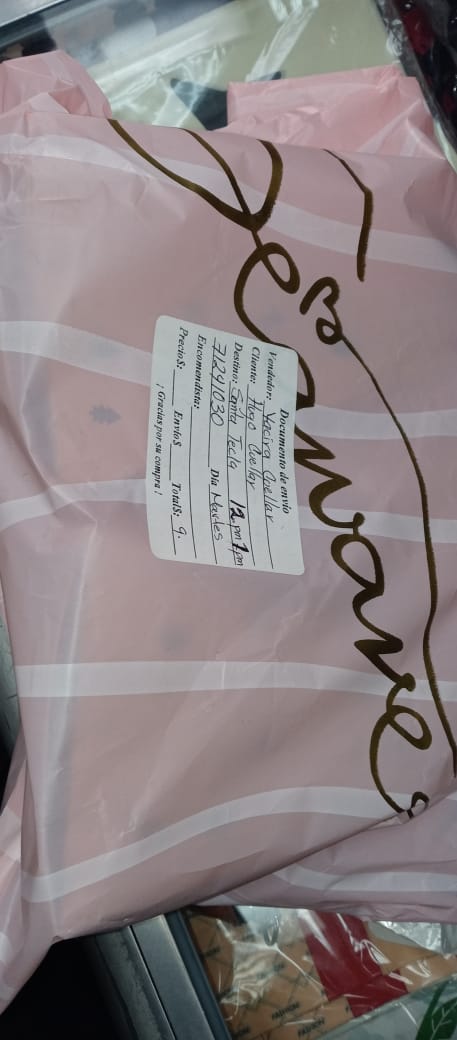 Documento de envio
Vendedor: Yacira Cuellar
Cliente: Hugo Cuellar
Destino: Santa Tecla 12 pm 1 pm
71241030 Dia Martes
Encomendista:
Precio$: Envio$ Total$: 9.
¡Gracias por su compra!
FASHION
FASHION